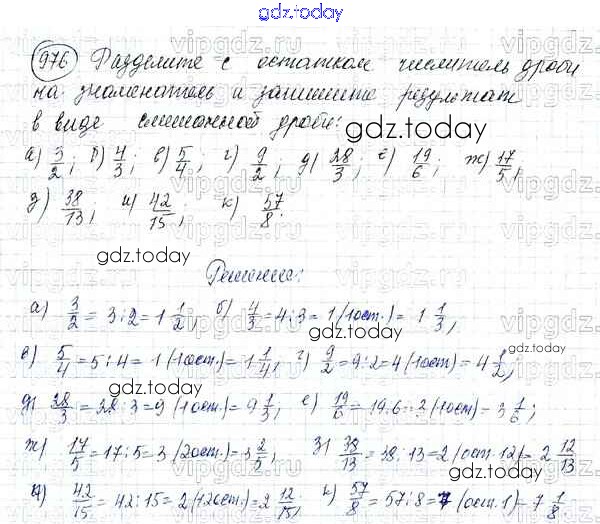 gdz.today
976 Разделите с остатком числитель дроби
на знаменатель и запишите результат
в виде смешанной дроби:
gdz.today
а) 3/2; б) 4/3; в) 5/4; г) 9/2; д) 28/3; е) 19/6; ж) 17/5;
з) 38/13; и) 42/15; к) 57/8.
gdz.today
Решение:
а) 3/2 = 3:2 = 1 1/2; б) 4/3 = 4:3 = 1 (1 ост.) = 1 1/3;
gdz.today
в) 5/4 = 5:4 = 1 (1 ост.) = 1 1/4; г) 9/2 = 9:2 = 4 (1 ост) = 4 1/2;
gdz.today
д) 28/3 = 28:3 = 9 (1 ост.) = 9 1/3; е) 19/6 = 19:6 = 2 (1 ост) = 3 1/6;
ж) 17/5 = 17:5 = 3 (2 ост.) = 3 2/5; з) 38/13 = 38:13 = 2 (ост. 12) = 2 12/13
gdz.today
и) 42/15 = 42:15 = 2 (12 ост.) = 2 12/15; к) 57/8 = 57:8 = 7 (ост. 1) = 7 1/8
gdz.today